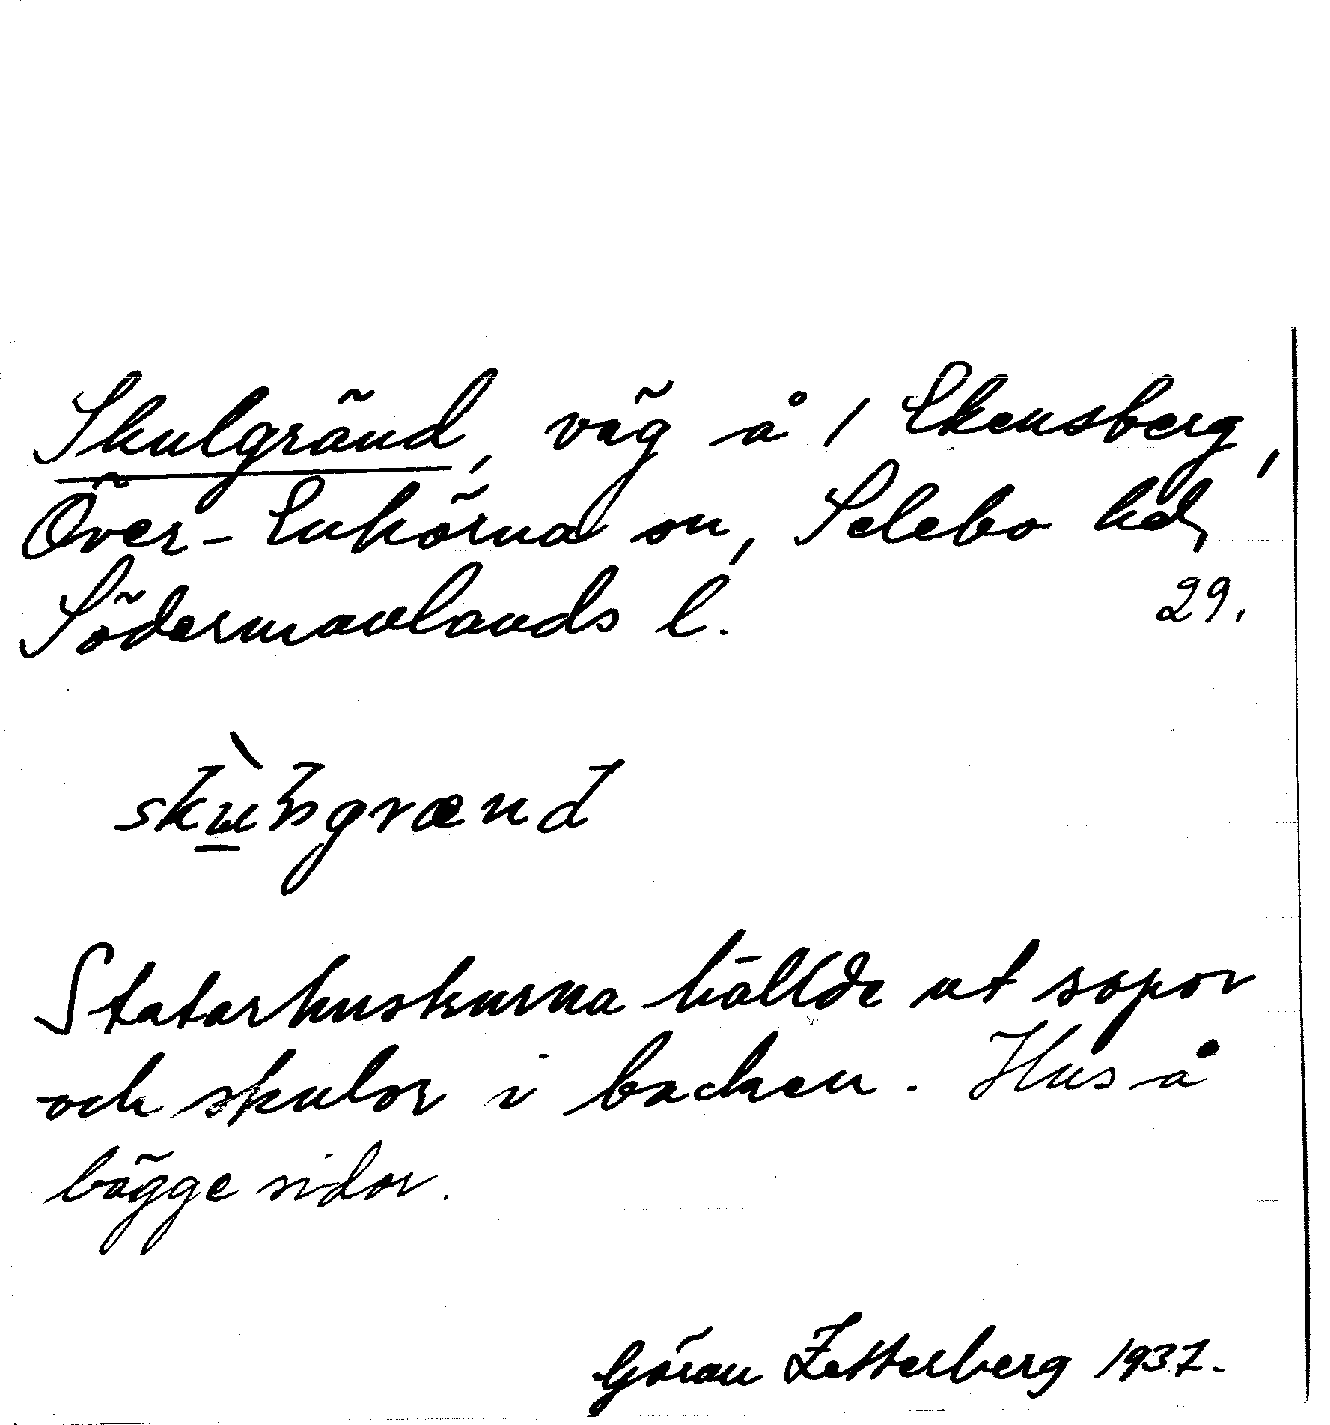 Skulgränd, väg å / Ekensberg,
Över-Enhörna sn, Selebo hd,
Södermanlands l. 29.
Statarhuskurna hällde ut sopor
och skulor i backen. Hus å
bägge sidor.
Göran Zetterberg 1937.